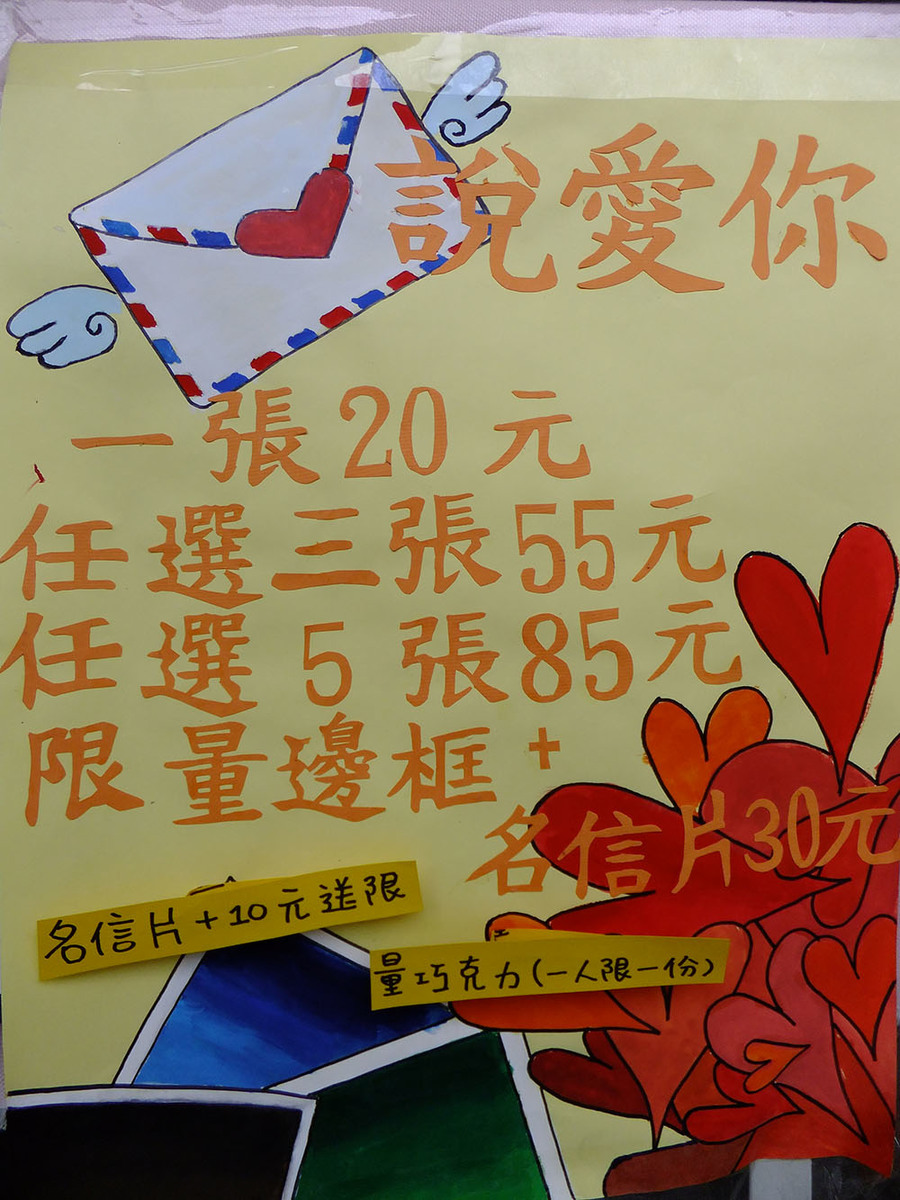 說愛你
一張20元
任選三張55元
任選5張85元
限量邊框+
名信片30元
名信片+10元送限
量巧克力(一人限一份)